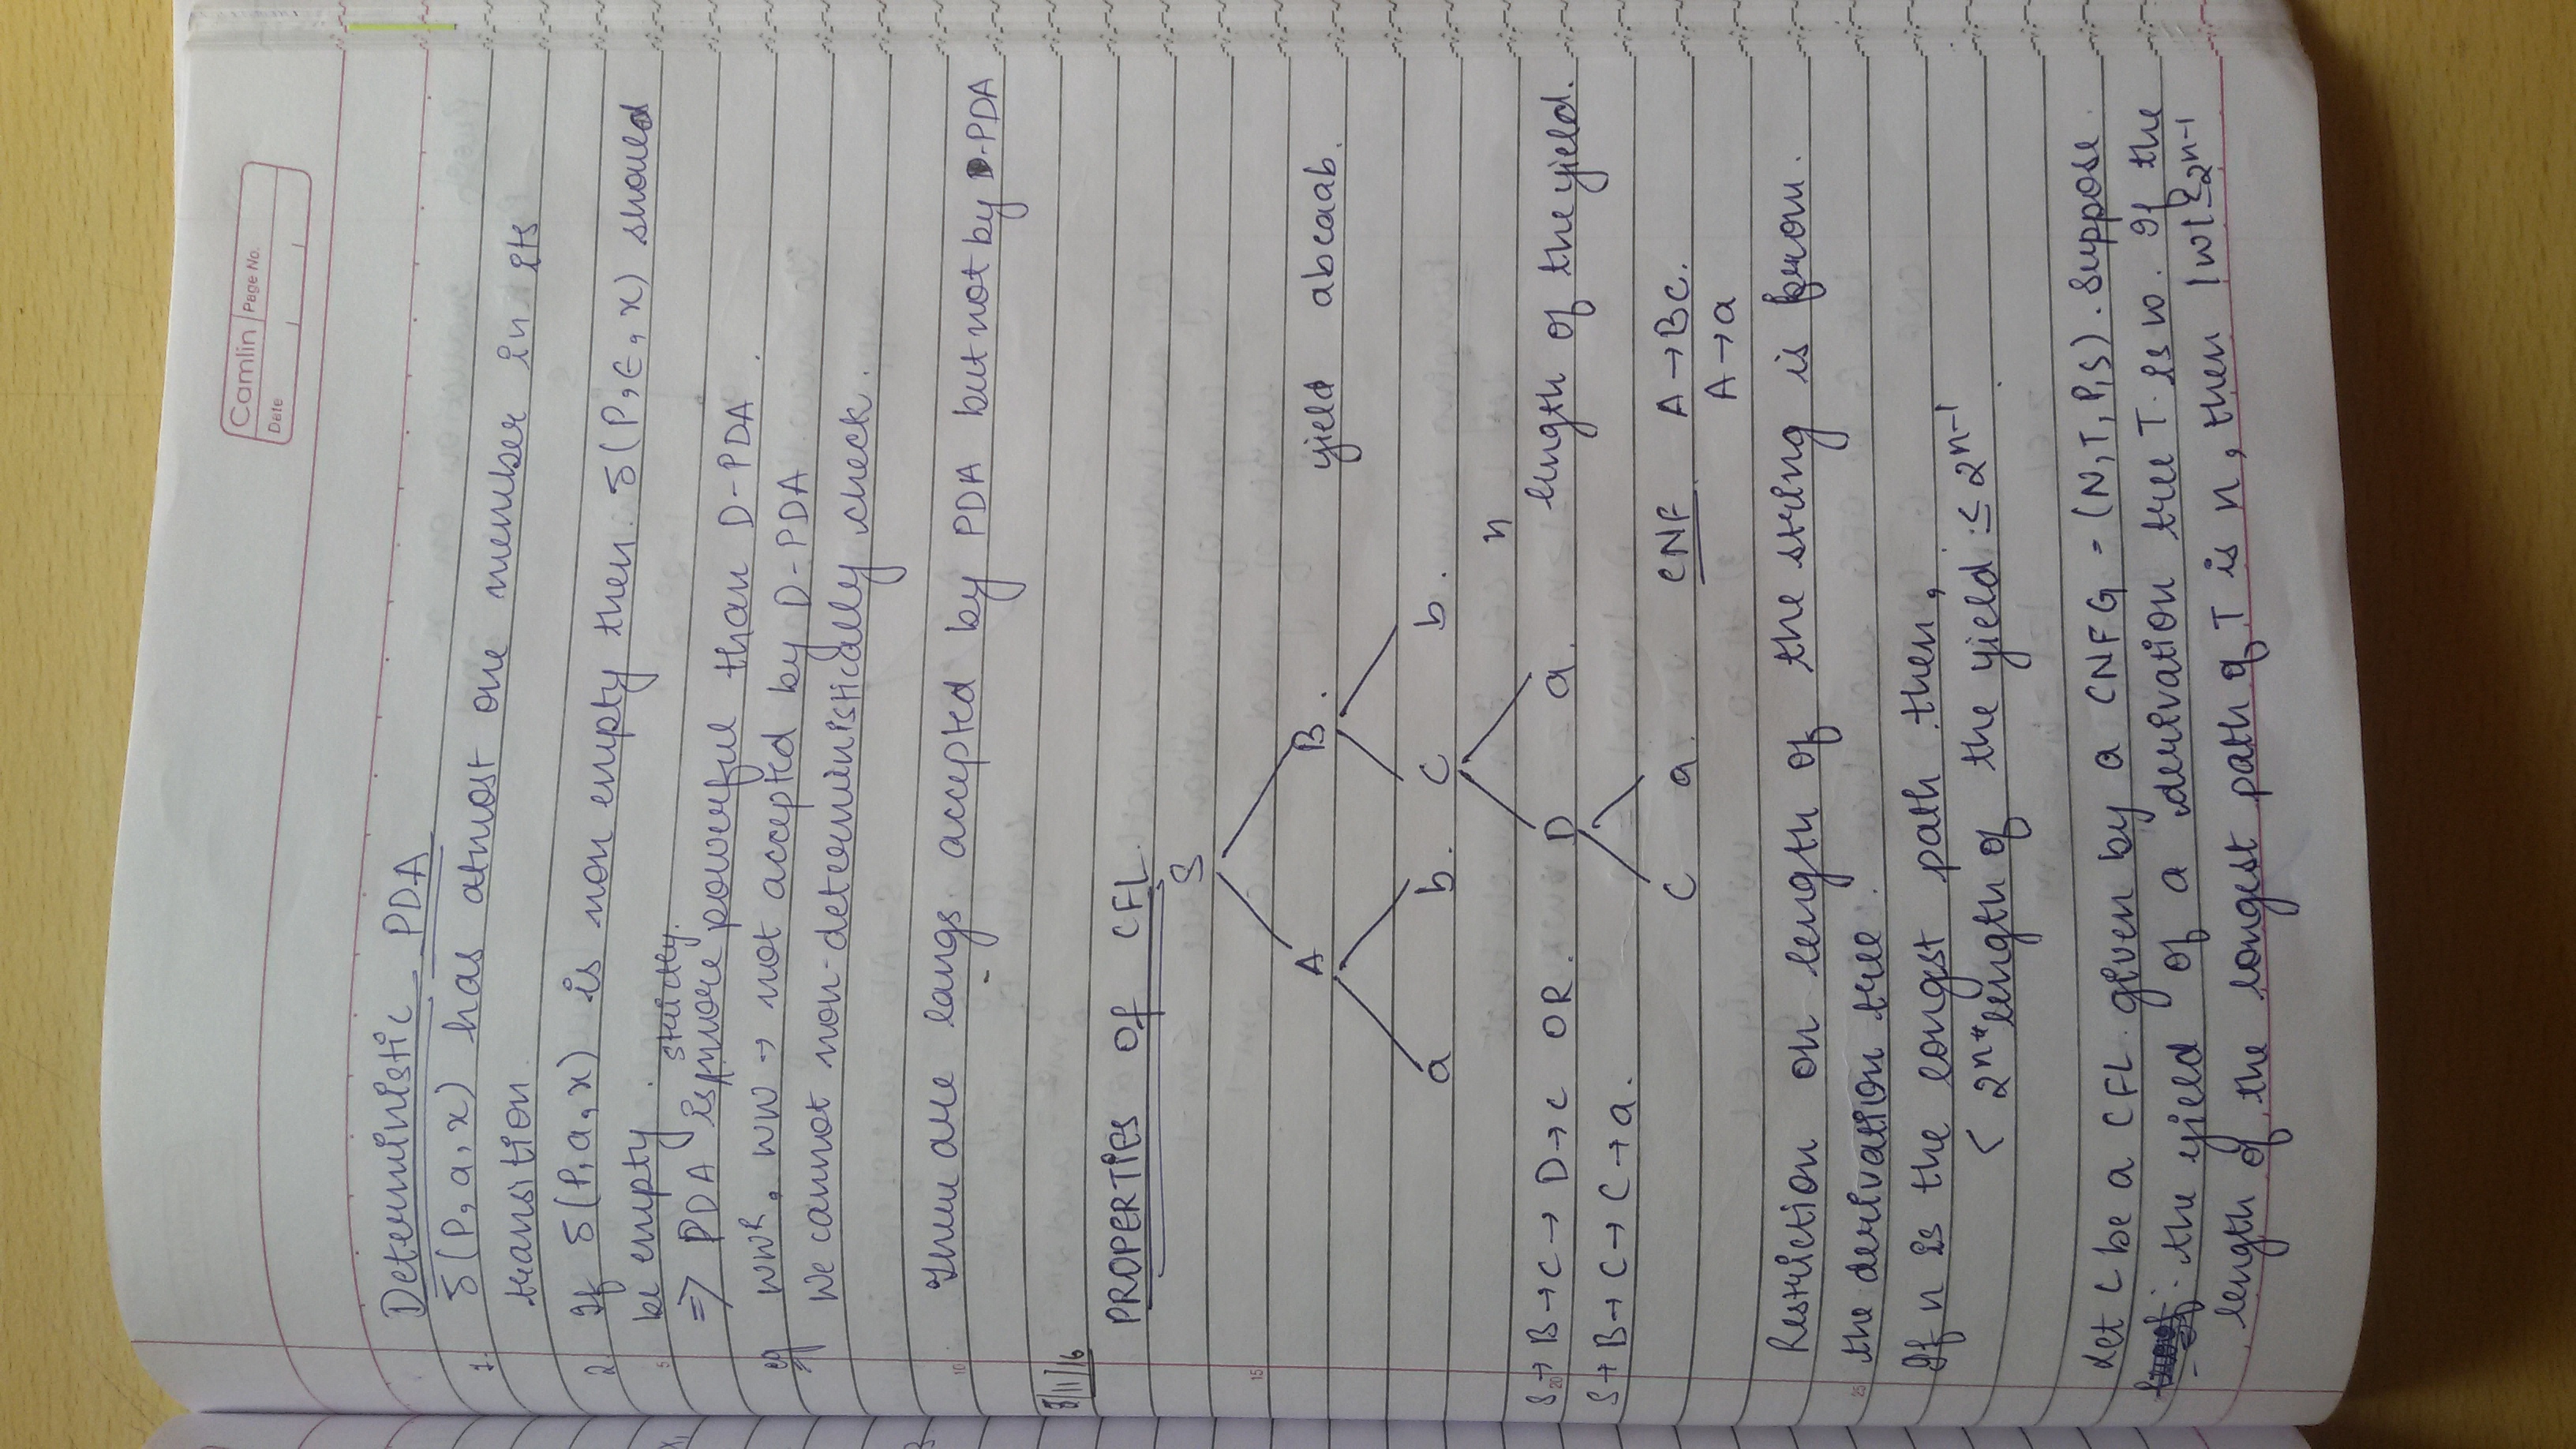 Camlin Page No.
Date
Deterministic PDA
1. δ(P, a, x) has atmost one member in its
transition
2. If δ(P, a, x) is non empty then. δ(P, ε, x) should
5 be empty.
strictly.
=> PDA is more powerful than D-PDA.
eg wwᴿ, ww → not accepted by D-PDA
We cannot non-deterministically check.
10 There are langs. accepted by PDA but not by D-PDA
8/11/16
PROPERTIES Of CFL.
S
15
A B.
yield abcaab.
a b. C b.
n
S → B → C → D → c OR. D a. length of the yield.
20
S → B → C → C → a.
C a. CNF. A → BC.
A → a
Restriction on length of the string is from.
25 the derivation tree.
If n is the longest path then,
< 2ⁿ length of the yield ≤ 2ⁿ⁻¹.
Let L be a CFL. given by a CNFG = (N, T, P, S). Suppose
the yield of a derivation tree T is w. If the
length of the longest path of T is n, then |w| ≤ 2ⁿ⁻¹